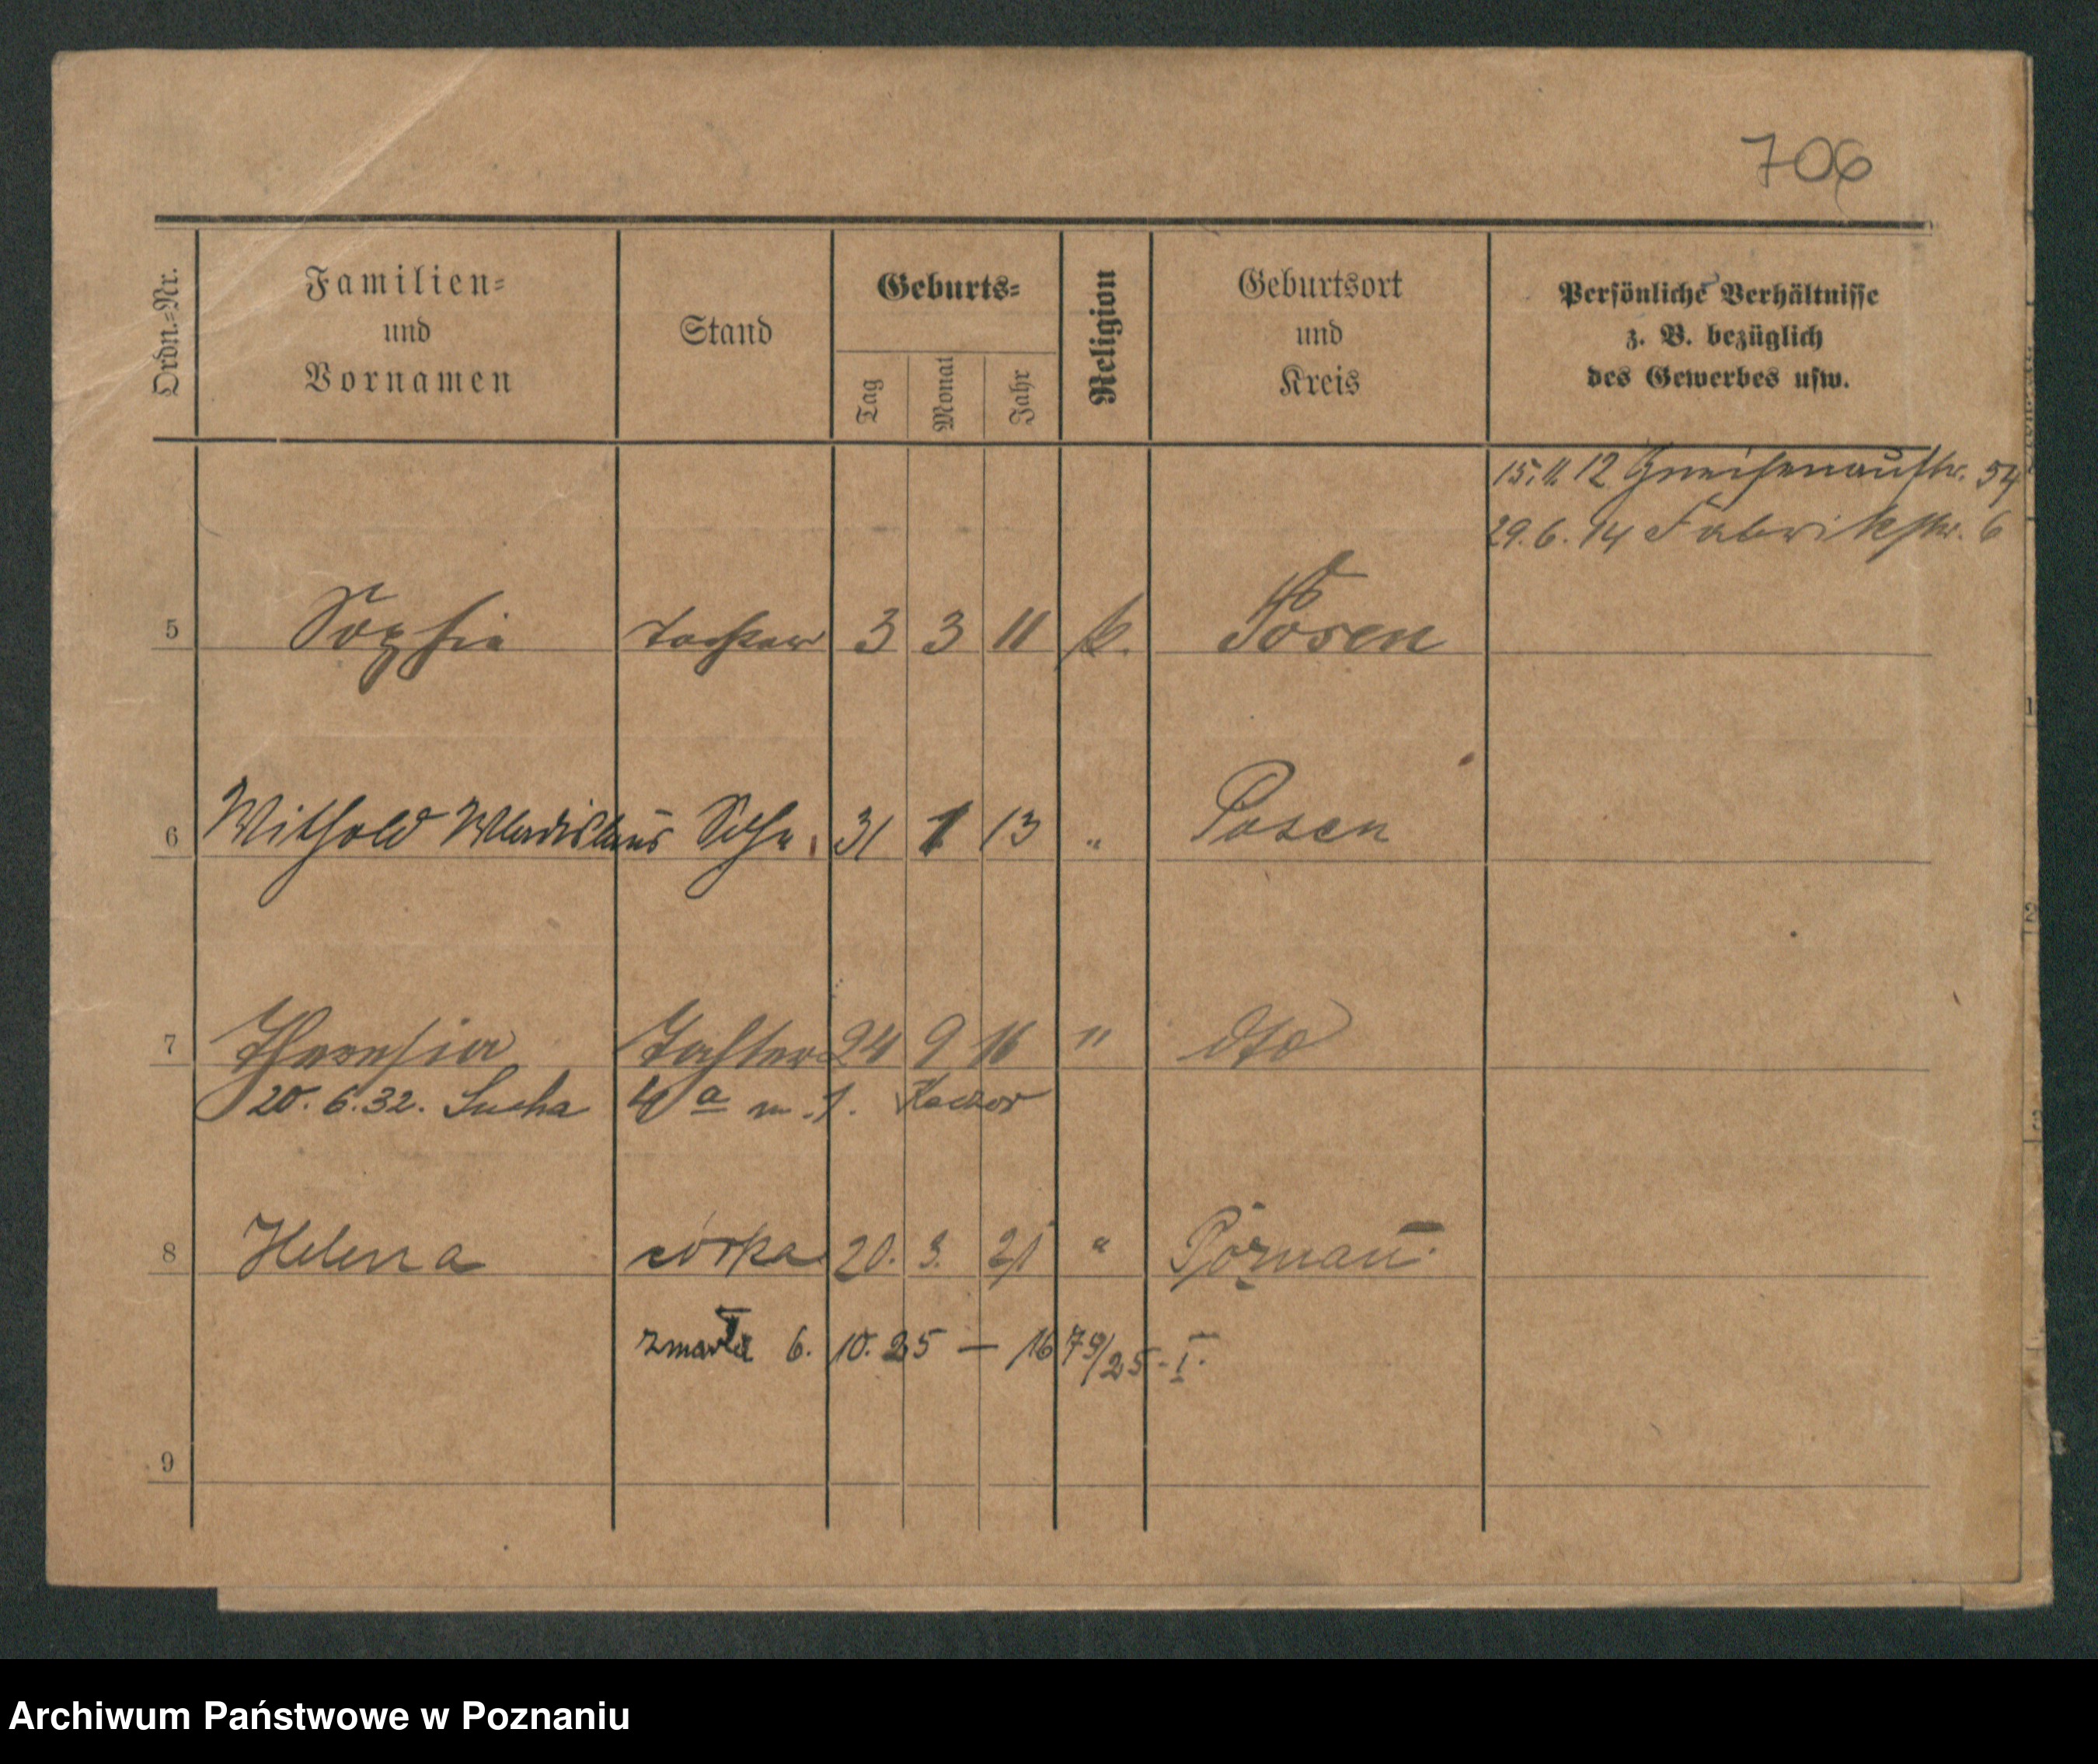 706
Ordn.-Nr.
Familien-
und
Vornamen
Stand
Geburts-
Tag
Monat
Jahr
Religion
Geburtsort
und
Kreis
Persönliche Verhältnisse
z. B. bezüglich
des Gewerbes usw.
15.11.12 Gneisenaustr. 54
29.6.14 Fabrikstr. 6
5 Sophie Tochter 3 3 11 k. Posen
6 Withold Wladislaus Sohn 31 1 13 " Posen
7 Theresia Tochter 24 9 16 " dto
20.6.32. Sucha 4 a m.1. Kaczor
8 Helena córka 20. 3. 21 " Poznań.
zmarła 6. 10. 25 — 1679/25 - I.
9
Archiwum Państwowe w Poznaniu